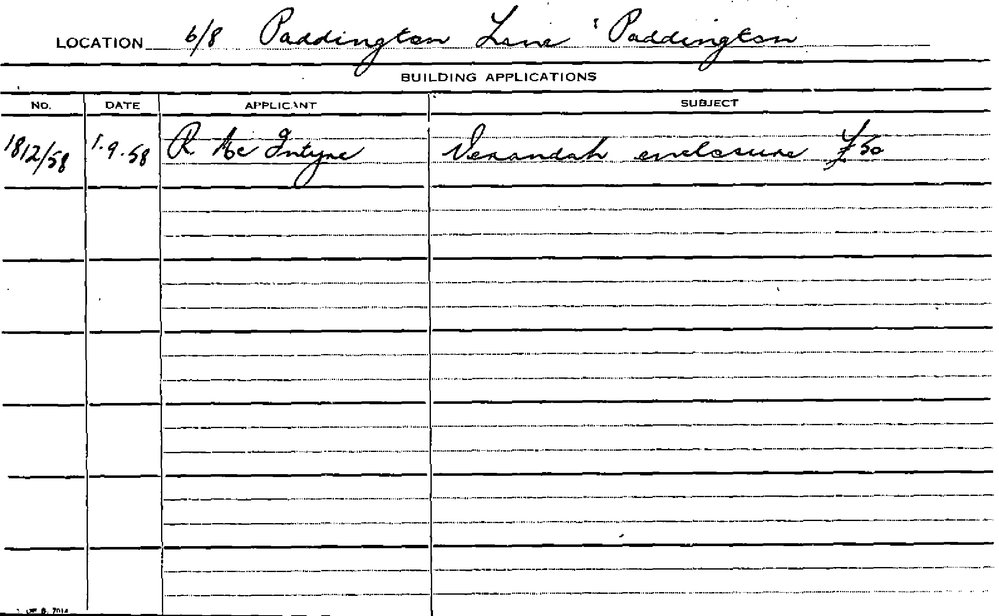 LOCATION 6/8 Paddington Lane Paddington
BUILDING APPLICATIONS
NO. DATE APPLICANT SUBJECT
1812/58 1.9.58 R. Mc Intyre Verandah enclosure £50